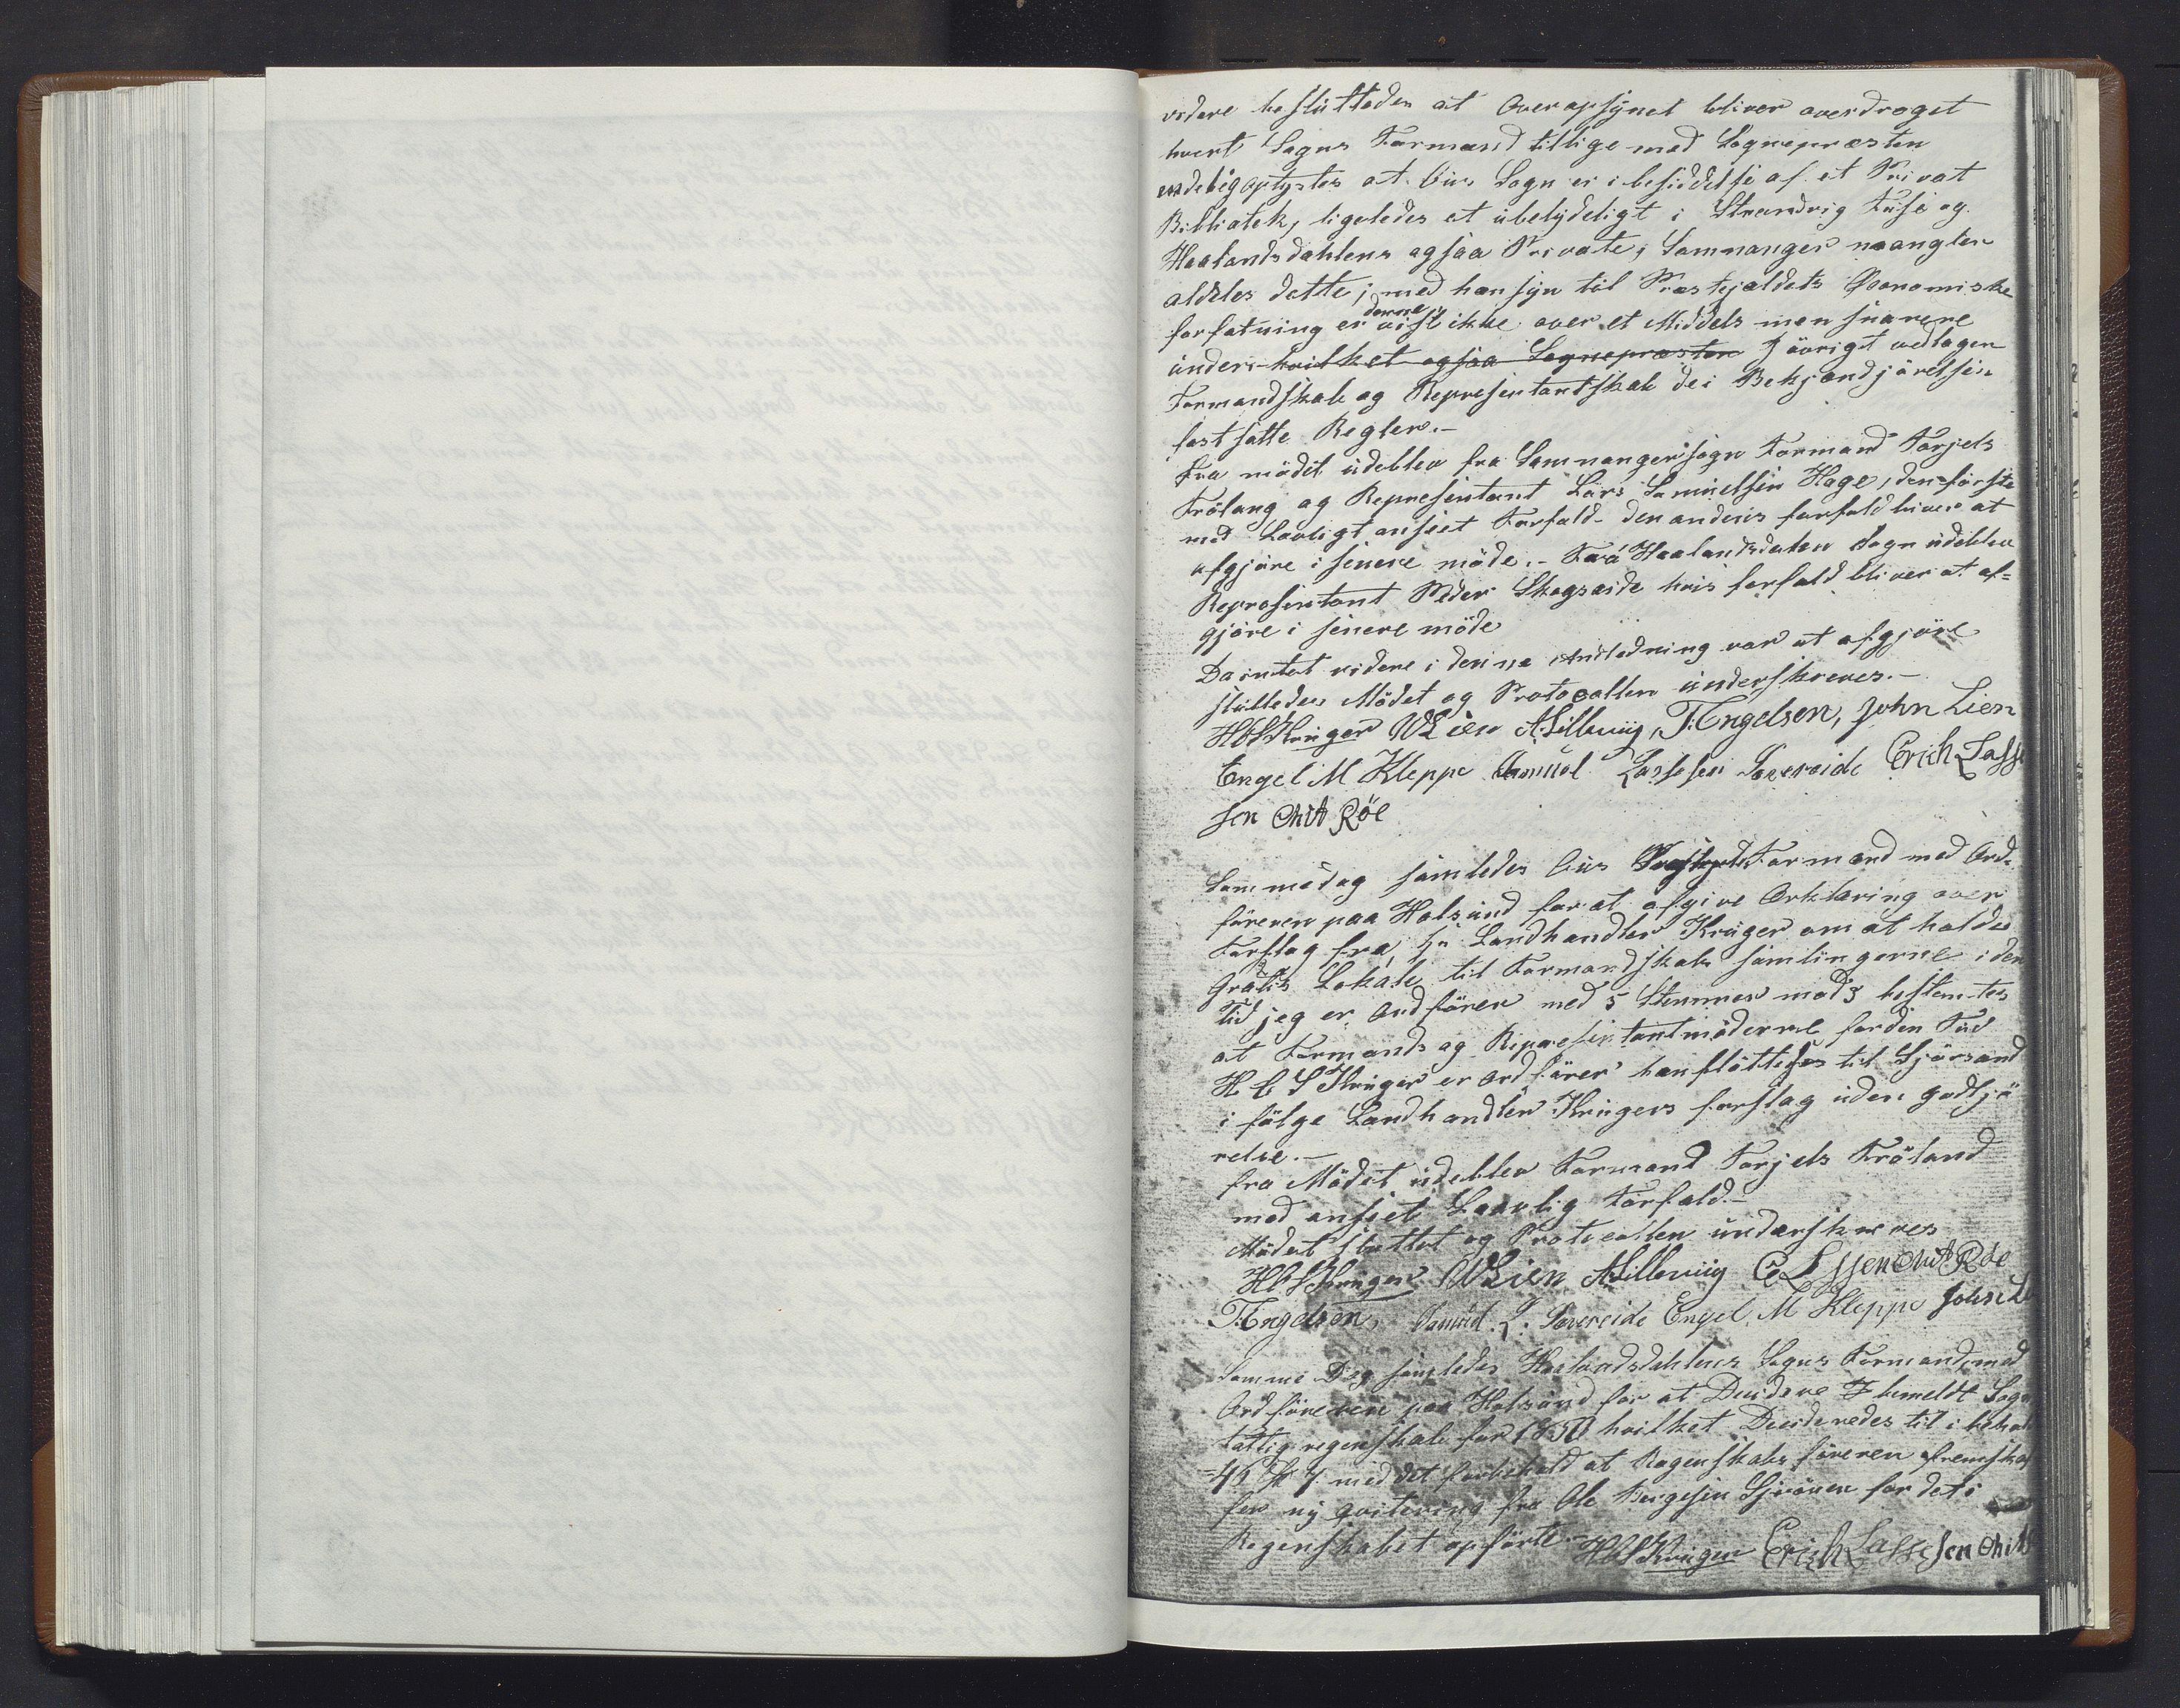 videre besluttedes at Overopsynet bliver overdroget
hvert Sogns Formænd tillige med Sognepræsten
endelig oplystes at Ous Sogn er i besiddelse af et Privat
Bibliotek, ligeledes et ubetydeligt i Strandvig Fuse og
Haalandsdahlens ogsaa Private, Samnanger mangler
aldeles dette; med hensyn til Præstejældets Øconomiske
forfatning er denne vist ikke over et Middels men snarere
under. hvilket ogsaa Sognepræsten J övrigt vedtager
Formandskab og Representantskab de i Bekjendtjörelsen
fastsatte Regler.-
Fra mödet udeblev fra Samnanger sogn Formand Torjels
Frölang og Representant Lars Samuelsen Hage, den förste
med Lovligt anseet Forfald - den anderes forfald bliver at
afgjöre i senere möde. - Fra Haalandsdalen Sogn udeblev
Representant Peder Skogseide hvis forfald bliver at af=
gjöre i senere möde
Da intet videre i denne Anledning var at afgjöre
sluttedes Mödet og Protocollen underskreves.-
HCSKrüger WLien ALillevüg, T:Engelsen, John Lien
Engel M Kleppe Samuel Lassesen Sævereide Erich Lasse
sen Röe
Sammedag samledes Ous Formænd med Ord-
föreren paa Halsund for at afgive Erklæring over
Forslag fra Hr Landhandler Krüger om at holde
Gratis Lokale til Formandskabs samlingerne i den
Tid jeg er Ordförer med 5 Stemmer mod 3 bestemtes
at Formands og Representantmöderne for den Tid
H C S Krüger er Ordförer henflöttedes til Sjörsand
i fölge Landhandler Krügers forslag uden godtjö
relse.-
fra Mödet udeblev Formand Torjels Fröland
med anseet Laavlig Forfald.-
Mödet sluttet og Protocollen underskreves
HCSKrüger WLien ALillevüg E L ssen Röe
T:Engelsen, Samuel. L. Sævereide Engel. M Kleppe John L
Samme Dag samledes Haalandsdahlens Sogns Formænd med
Ordföreren paa Halsund for at Decidere bemeldte Sogn
fattig regenskab for 1850 hvilket Decideredes til i behol
45 Sk 7. med det forbehold at Regenskabs föreren fremskaf
fer ny qvitering fra Ole Börgesen for det i
Regenskabet opförte HCSKrüger Erich Lassesen